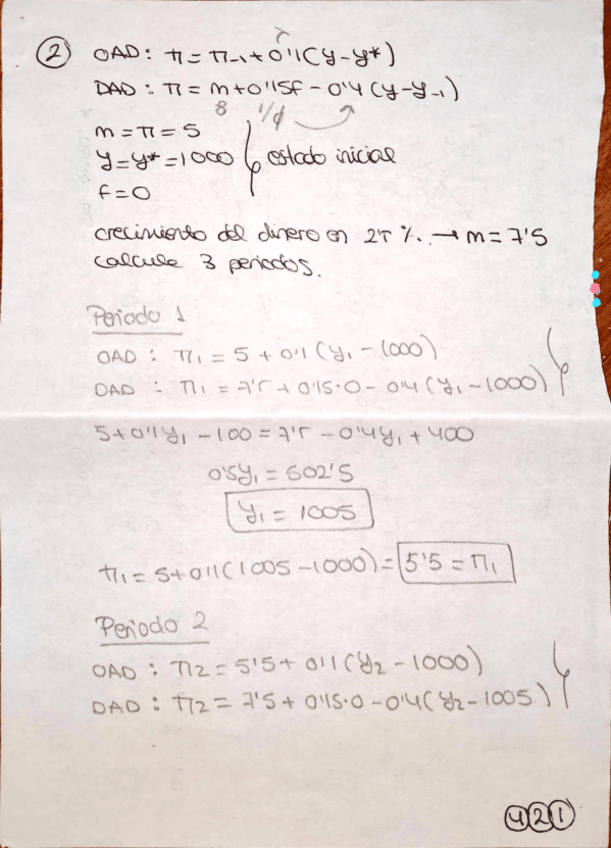 2 OAD: π = π-1 + 0'1(y-y*)
DAD: π = m + 0'15f - 0'4(y-y-1)
8 1/φ
m = π = 5
y = y* = 1000 } estado inicial
f = 0
crecimiento del dinero en 2'5 %. → m = 7'5
calcule 3 periodos.
Periodo 1
OAD : π1 = 5 + 0'1 (y1 - 1000)
DAD : π1 = 7'5 + 0'15·0 - 0'4 (y1 - 1000)
5 + 0'1y1 - 100 = 7'5 - 0'4y1 + 400
0'5y1 = 502'5
y1 = 1005
π1 = 5 + 0'1(1005 - 1000) = 5'5 = π1
Periodo 2
OAD : π2 = 5'5 + 0'1 (y2 - 1000)
DAD : π2 = 7'5 + 0'15·0 - 0'4( y2 - 1005 )
421